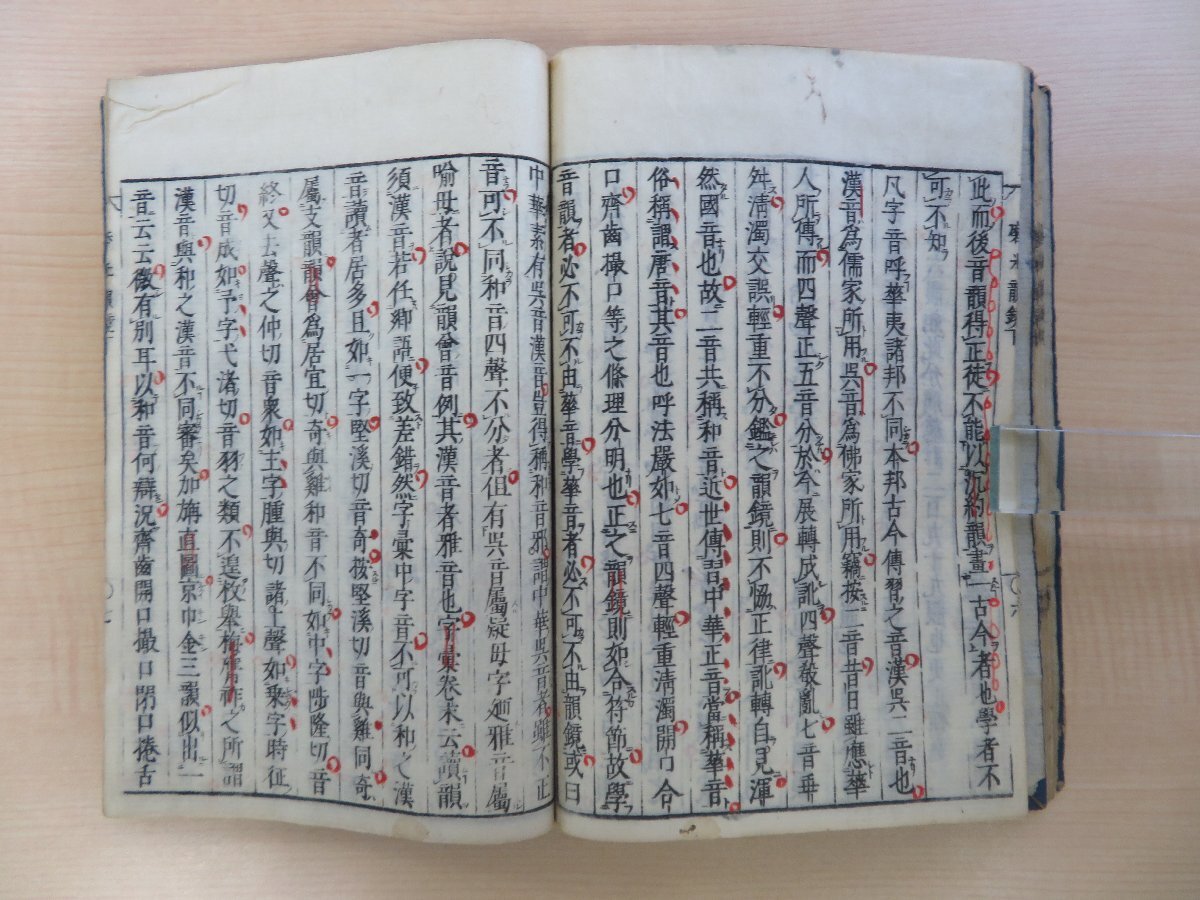 此而後音韻得正徒不能以沉約韻畫一古今者也學者不
可不知
凡字音呼華夷諸邦不同本邦古今傳習之音漢吳二音也
漢音為儒家所用吳音為佛家所用竊按二音昔日雖應華
人所傳而四聲正五音分於今展轉成訛四聲殽亂七音乖
舛清濁交誤輕重不分鑑之韻鏡則不協正律訛轉自見渾
然國音也故二音共稱和音近世傳習中華正音當稱華音
俗稱謂唐音其音也呼法嚴如七音四聲輕重清濁開口合
口齊齒撮口等之條理分明也正之韻鏡則如合符節故學
音韻者必不可不由華音學華音者必不可不由韻鏡或曰
中華素有吳音漢音豈得稱和音邪謂中華吳音者雖不正
音可不同和音四聲不分者但有吳音屬疑母字迺雅音屬
喻母者說見韻會音例其漢音者雅音也字彙卷末云讀韻
須漢音若任鄉語便致差錯然字彙中字音不可以和之漢
音讀者居多且如一字堅溪切音奇按堅溪切音與雞同奇
屬支韻韻會為居宜切奇與雞和音不同如中字陟隆切音
終又去聲之仲切音眾如主字腫與切諸上聲如乘字時征
切音成如予字弋渚切音羽之類不遑枚舉梅膺祚之所謂
漢音與和之漢音不同審矣加旃直圖京巾金三韻似出一
音云云微有別耳以和音何辯況齊齒開口撮口閉口捲古